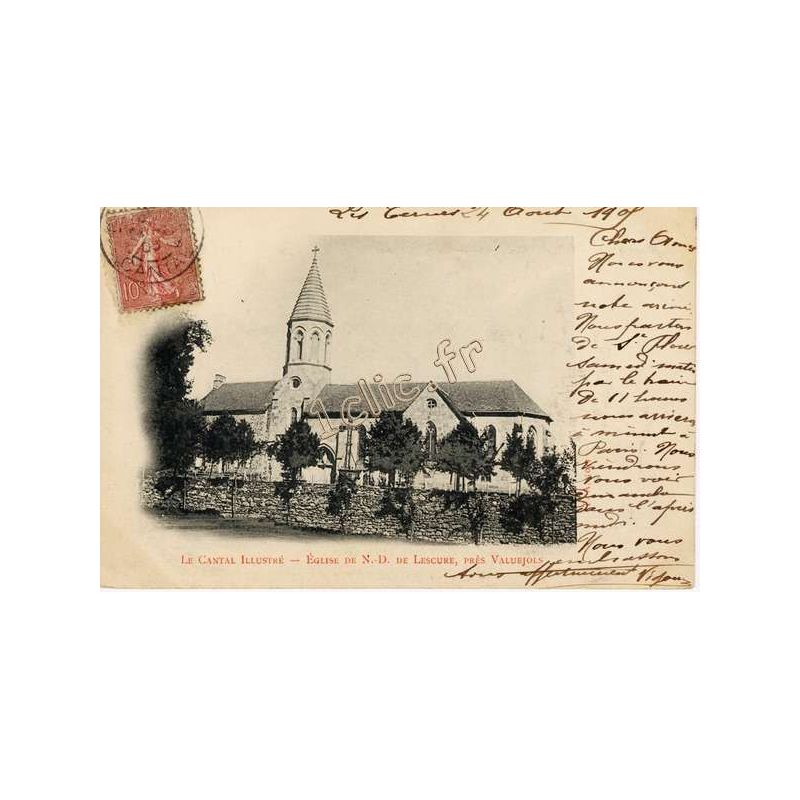 Les Ternes 24 Août 190
Nous vous
annonçons
notre arrivé
Nous partons
de St Flour
Samedi matin
par le train
de 11 heures
nous arrivons
à minuit à
Paris. Nous
viendrons
vous voir
dans l'après
midi.
Nous vous
embrassons
Tous affectueusement
10
CANTAL
1clic.fr
LE CANTAL ILLUSTRÉ — ÉGLISE DE N.-D. DE LESCURE, PRÈS VALUEJOLS